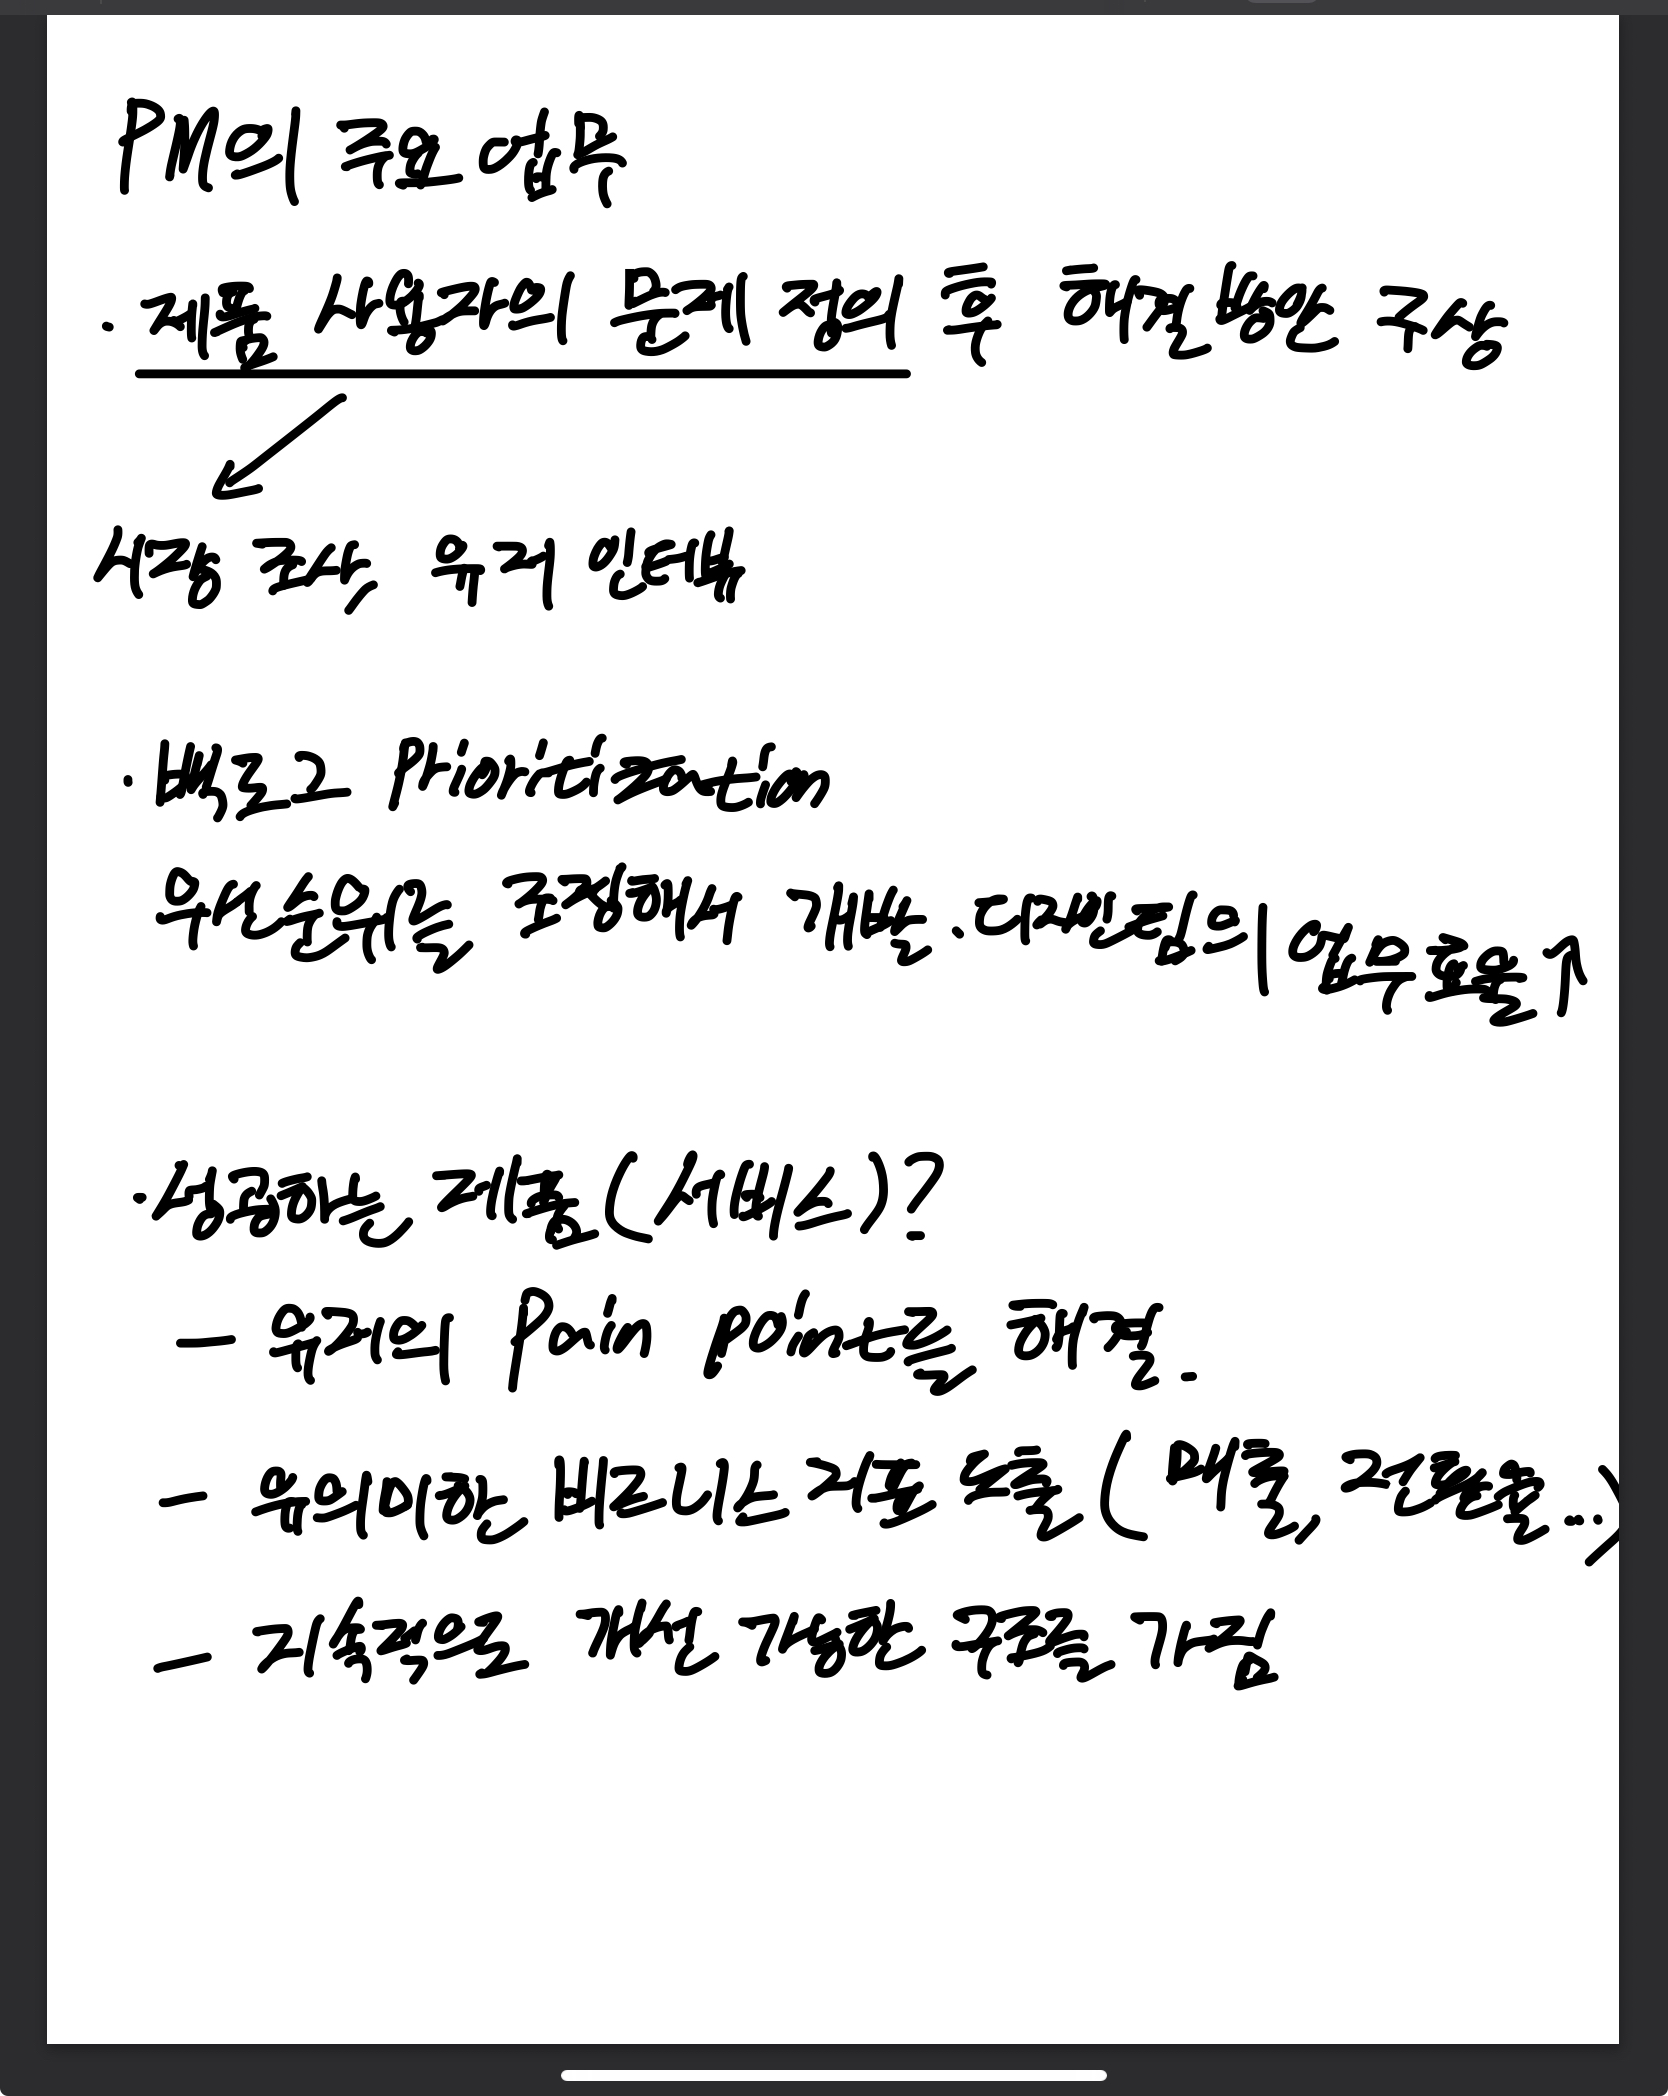 PM의 주요 업무
· 제품 사용자의 문제 정의 후 해결방안 구상
시장 조사, 유저 인터뷰
· 백로그 Prioritization
우선순위를 조정해서 개발·디자인팀의 업무 효율↑
· 성공하는 제품(서비스)?
- 유저의 Pain point를 해결.
- 유의미한 비즈니스 지표 도출( 매출, 전환율...)
- 지속적으로 개선 가능한 구조를 가짐